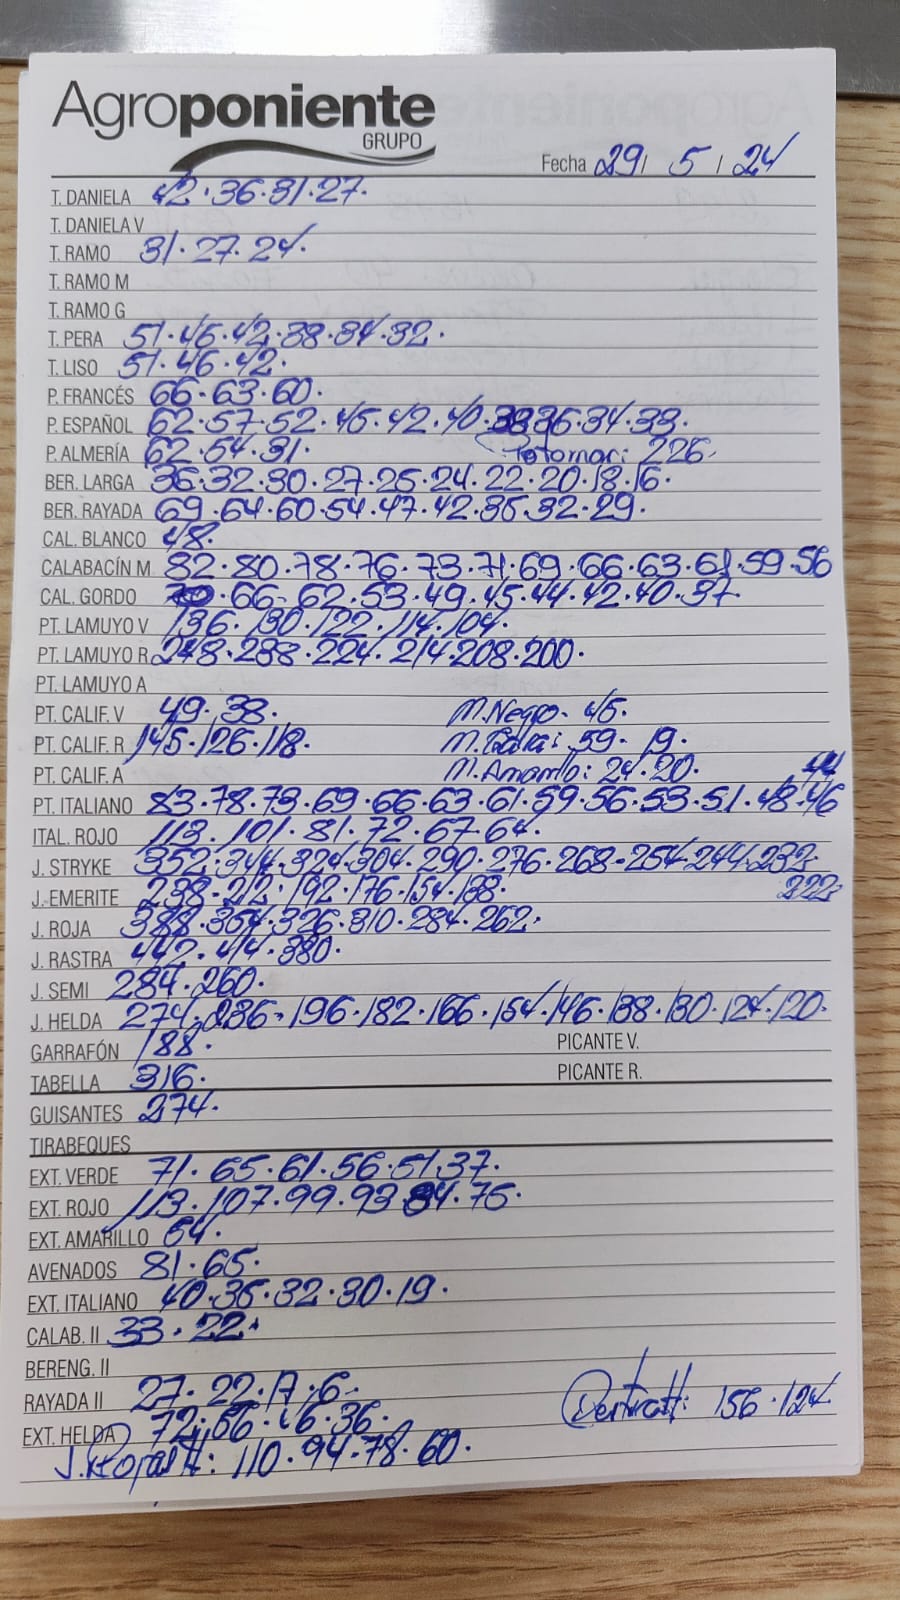 Agroponiente
GRUPO
Fecha 29 / 5 / 24
T. DANIELA 42·36·31·27·
T. DANIELA V
T. RAMO 31·27·24·
T. RAMO M
T. RAMO G
T. PERA 51·46·42·38·34·32·
T. LISO 51·46·42·
P. FRANCÉS 66·63·60·
P. ESPAÑOL 62·57·52·45·42·40·38·36·34·33·
P. ALMERÍA 62·54·31· 226·
BER. LARGA 36·32·30·27·25·24·22·20·18·16·
BER. RAYADA 69·64·60·54·47·42·35·32·29·
CAL. BLANCO 48·
CALABACÍN M 82·80·78·76·73·71·69·66·63·61·59·56
CAL. GORDO 66·62·53·49·45·44·42·40·37·
PT. LAMUYO V 136·130·122·114·104·
PT. LAMUYO R 248·238·224·214·208·200·
PT. LAMUYO A
PT. CALIF. V 49·38· M. Negro· 45·
PT. CALIF. R 145·126·118· M. 59·19·
PT. CALIF. A M. Amarillo: 24·20· 44
PT. ITALIANO 83·78·73·69·66·63·61·59·56·53·51·48·46
ITAL. ROJO 113·101·81·72·67·64·
J. STRYKE 352·344·324·304·290·276·268·254·244·232·
J. EMERITE 238·212·192·176·154·138· 222·
J. ROJA 388·354·326·310·284·262·
J. RASTRA 442·414·380·
J. SEMI 284·260·
J. HELDA 274·236·196·182·166·154·146·138·130·124·120·
GARRAFÓN 188· PICANTE V.
TABELLA 316· PICANTE R.
GUISANTES 274·
TIRABEQUES
EXT. VERDE 71·65·61·56·51·37·
EXT. ROJO 113·107·99·93·84·75·
EXT. AMARILLO 64·
AVENADOS 81·65·
EXT. ITALIANO 40·35·32·30·19·
CALAB. II 33·22·
BERENG. II
RAYADA II 27·22·17·6·
EXT. HELDA 72·66·46·36· 156·124
J. Rojas II: 110·94·78·60·